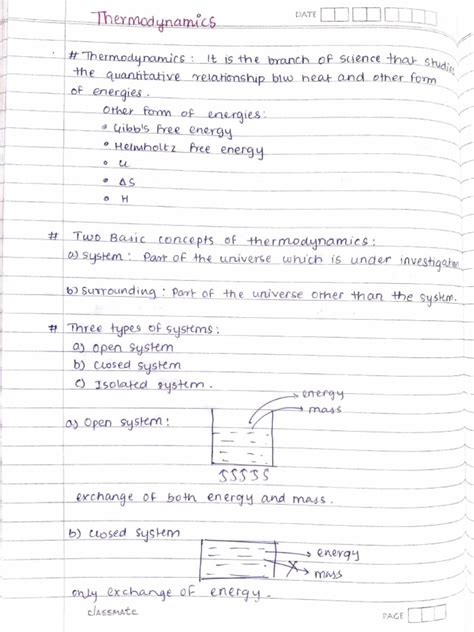 Thermodynamics
DATE
# Thermodynamics : It is the branch of science that studies
the quantitative relationship b/w heat and other form
of energies.
Other form of energies:
• Gibb's free energy
• Helmholtz free energy
• U
• ΔS
• H
# Two Basic concepts of thermodynamics :
a) System : Part of the universe which is under investigation
b) Surrounding : Part of the universe other than the system.
# Three types of systems :
a) Open system
b) Closed system
c) Isolated system.
energy
mass
a) Open system :
exchange of both energy and mass.
b) Closed system
energy
mass
only exchange of energy.
classmate
PAGE